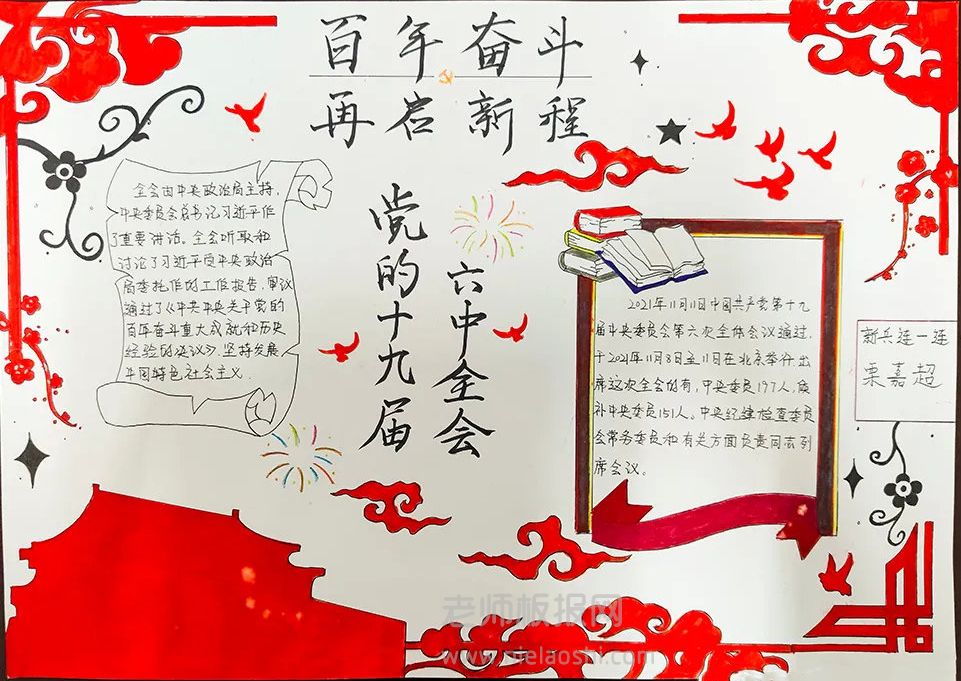 百年奋斗
再启新程
党的十九届
六中全会
全会由中央政治局主持，
中央委员会总书记习近平作
了重要讲话。全会听取和
讨论了习近平受中央政治
局委托作的工作报告，审议
通过了《中共中央关于党的
百年奋斗重大成就和历史
经验的决议》，坚持发展
中国特色社会主义.
2021年11月11日中国共产党第十九
届中央委员会第六次全体会议通过，
于2021年11月8日至11日在北京举行.出
席这次全会的有，中央委员197人，候
补中央委员151人。中央纪律检查委员
会常务委员和有关方面负责同志列
席会议。
新兵连一连
栗嘉超
老师板报网